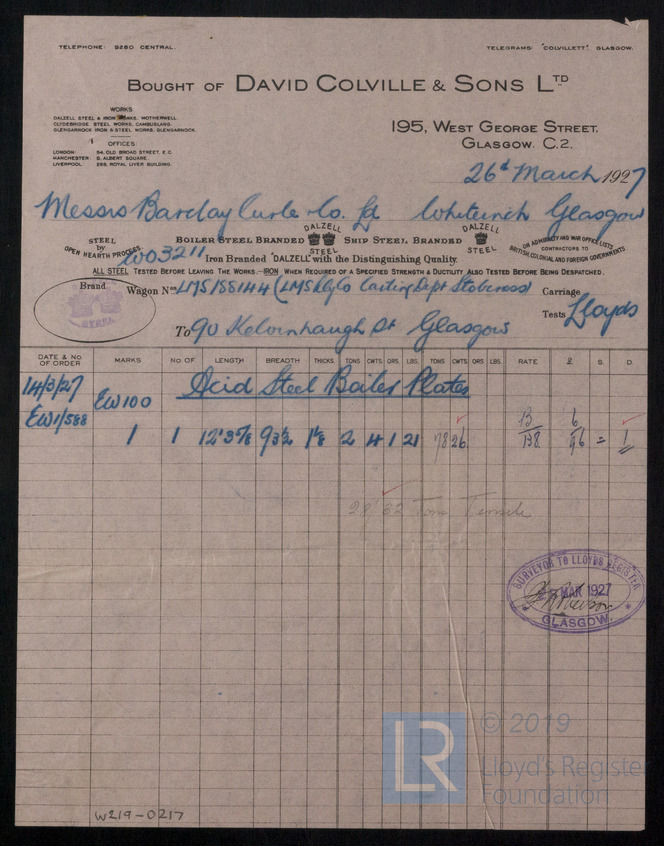 TELEPHONE: 9260 CENTRAL.
TELEGRAMS: "COLVILLETT" GLASGOW.
BOUGHT OF DAVID COLVILLE & SONS LTD
WORKS.
DALZELL STEEL & IRON WORKS, MOTHERWELL.
CLYDEBRIDGE STEEL WORKS, CAMBUSLANG.
GLENGARNOCK IRON & STEEL WORKS, GLENGARNOCK.
OFFICES:
LONDON: 54, OLD BROAD STREET, E.C.
MANCHESTER: 8, ALBERT SQUARE.
LIVERPOOL: 285, ROYAL LIVER BUILDING.
195, WEST GEORGE STREET,
GLASGOW. C.2.
26th March 1927
Messrs Barclay Curle & Co. Ld Whiteinch Glasgow
STEEL by OPEN HEARTH PROCESS.
BOILER STEEL BRANDED DALZELL STEEL SHIP STEEL BRANDED DALZELL STEEL
ON ADMIRALTY AND WAR OFFICE LISTS
CONTRACTORS TO
BRITISH, COLONIAL AND FOREIGN GOVERNMENTS
W03211
Iron Branded "DALZELL" with the Distinguishing Quality.
ALL STEEL TESTED BEFORE LEAVING THE WORKS.—IRON WHEN REQUIRED OF A SPECIFIED STRENGTH & DUCTILITY ALSO TESTED BEFORE BEING DESPATCHED.
Brand
STEEL
Wagon Nos LMS 155144 (LMS Rly Co Carting Dept Stobcross)
Carriage
Tests Lloyds
To 90 Kelvinhaugh St Glasgow
DATE & NO OF ORDER MARKS NO OF LENGTH BREADTH THICKS. TONS CWTS. QRS. LBS. TONS CWTS. QRS. LBS. RATE £ S. D.
14/3/27 Acid Steel Boiler Plates
EW100
EW1/588
1 1 12'3⅞ 93½ 1⅛ 2 4 1 21
28/32 Tons Tensile
SURVEYOR TO LLOYDS REGISTER
MAR 1927
GLASGOW.
LR
© 2019
Lloyd's Register
Foundation
W219-0217